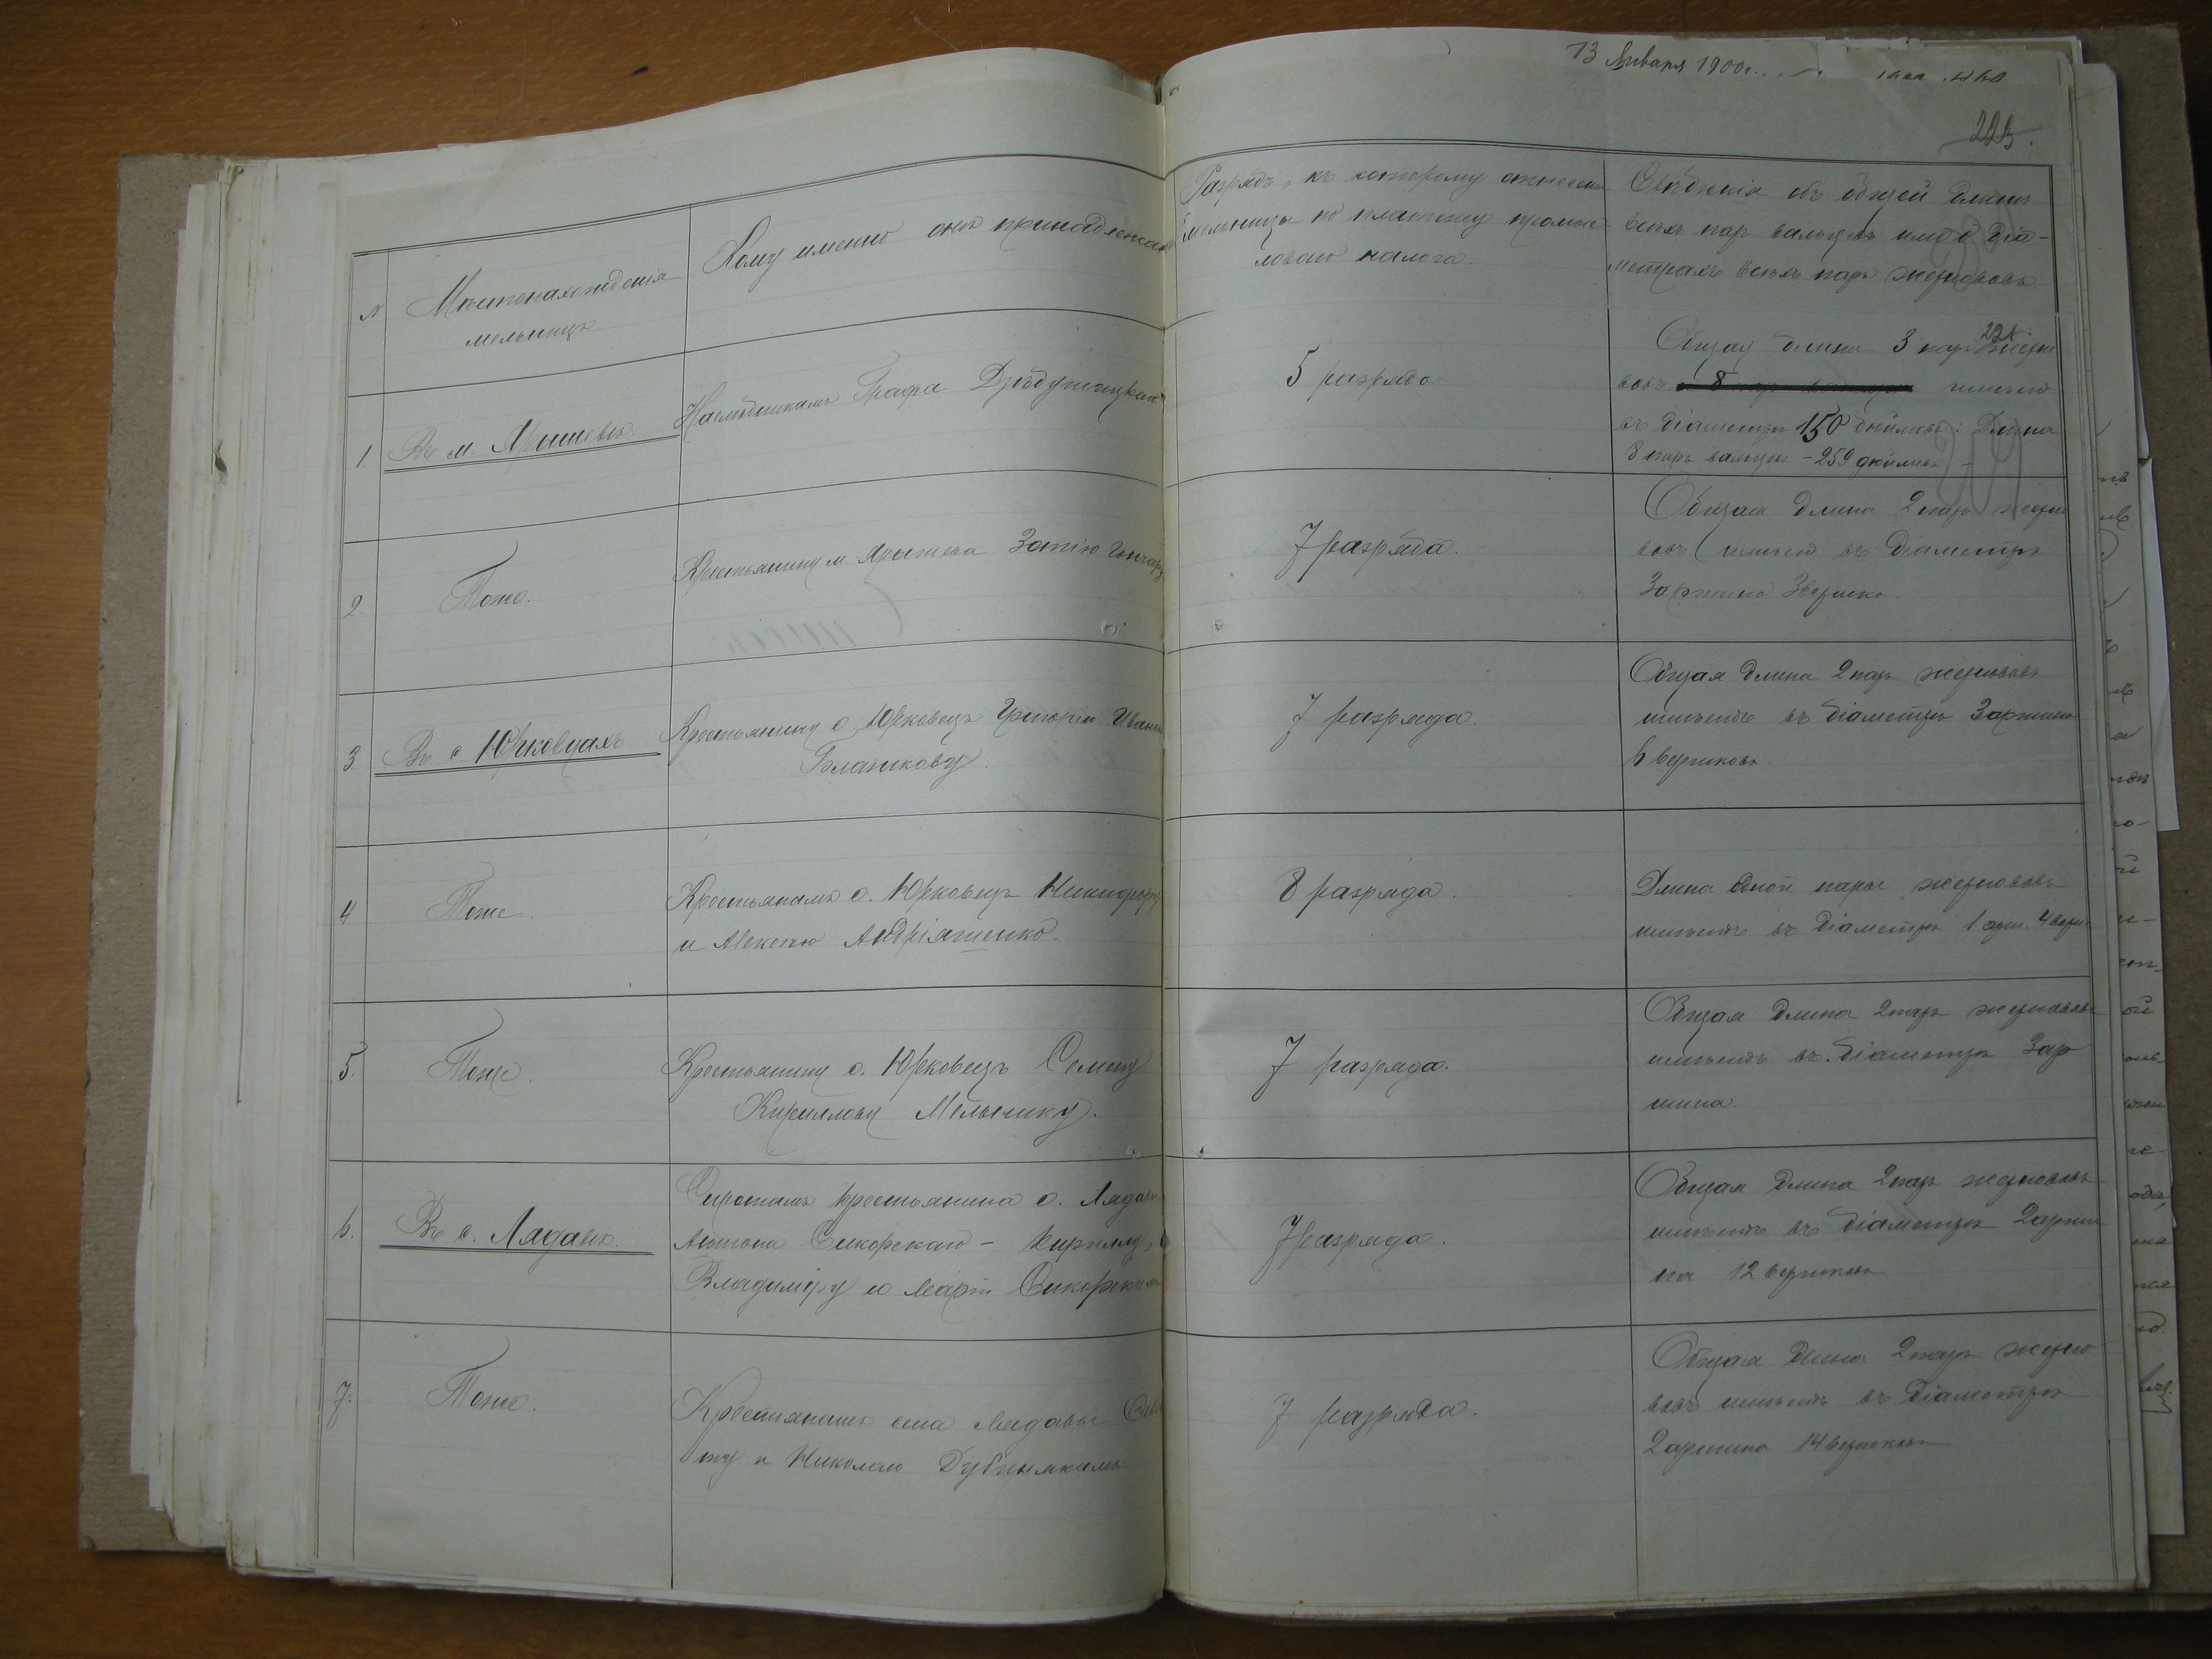 13 Января 1900 г.
223.
№
Местонахожденія
мельницъ
Кому именно онѣ принадлежатъ
Разрядъ, къ которому отнесены
мельницы по платежу промыс-
ловаго налога.
Свѣдѣнія объ общей длинѣ
всѣхъ паръ вальцевъ или о діа-
метрахъ всѣхъ паръ жернововъ
1.
Въ м. Ярышевѣ.
Наслѣдникамъ Графа Дзѣдушицкаго
5 разряда
Общая длина 3 паръ жерно
вовъ имѣетъ
въ діаметрѣ 150 дюймовъ: Длина
8 паръ вальцевъ - 259 дюймовъ -
2.
Тоже.
Крестьянину м. Ярышева Гончару
7 разряда.
Общая длина 2 паръ жерно
вовъ имѣетъ въ діаметрѣ
3 аршина 3 вершка
3
Въ с. Юрковцахъ
Крестьянину с. Юрковецъ Григорію Иванову
Блажкову.
7 разряда.
Общая длина 2 паръ жернововъ
имѣетъ въ діаметрѣ 3 аршина
6 вершковъ
4
Тоже.
Крестьянамъ с. Юрковецъ Никифору
и Алексѣю Андріяшенко.
8 разряда.
Длина одной пары жернововъ
имѣетъ въ діаметрѣ 1 арш. 4 верш
5.
Тоже.
Крестьянину с. Юрковецъ Семену
Кириллову Мельнику.
7 разряда.
Общая длина 2 паръ жернововъ
имѣетъ въ діаметрѣ 3 ар
шина.
6.
Въ с. Лядавѣ.
Сиротамъ крестьянина с. Лядавы
Антона Сикорскаго - Кириллу,
Владиміру и Маріи Сикорскимъ
7 разряда.
Общая длина 2 паръ жернововъ
имѣетъ въ діаметрѣ 2 арши
на 12 вершковъ
7.
Тоже.
Крестьянамъ села Лядавы
и Николаю
7 разряда.
Общая длина 2 паръ жерно
вовъ имѣетъ въ діаметрѣ
2 аршина 14 вершковъ